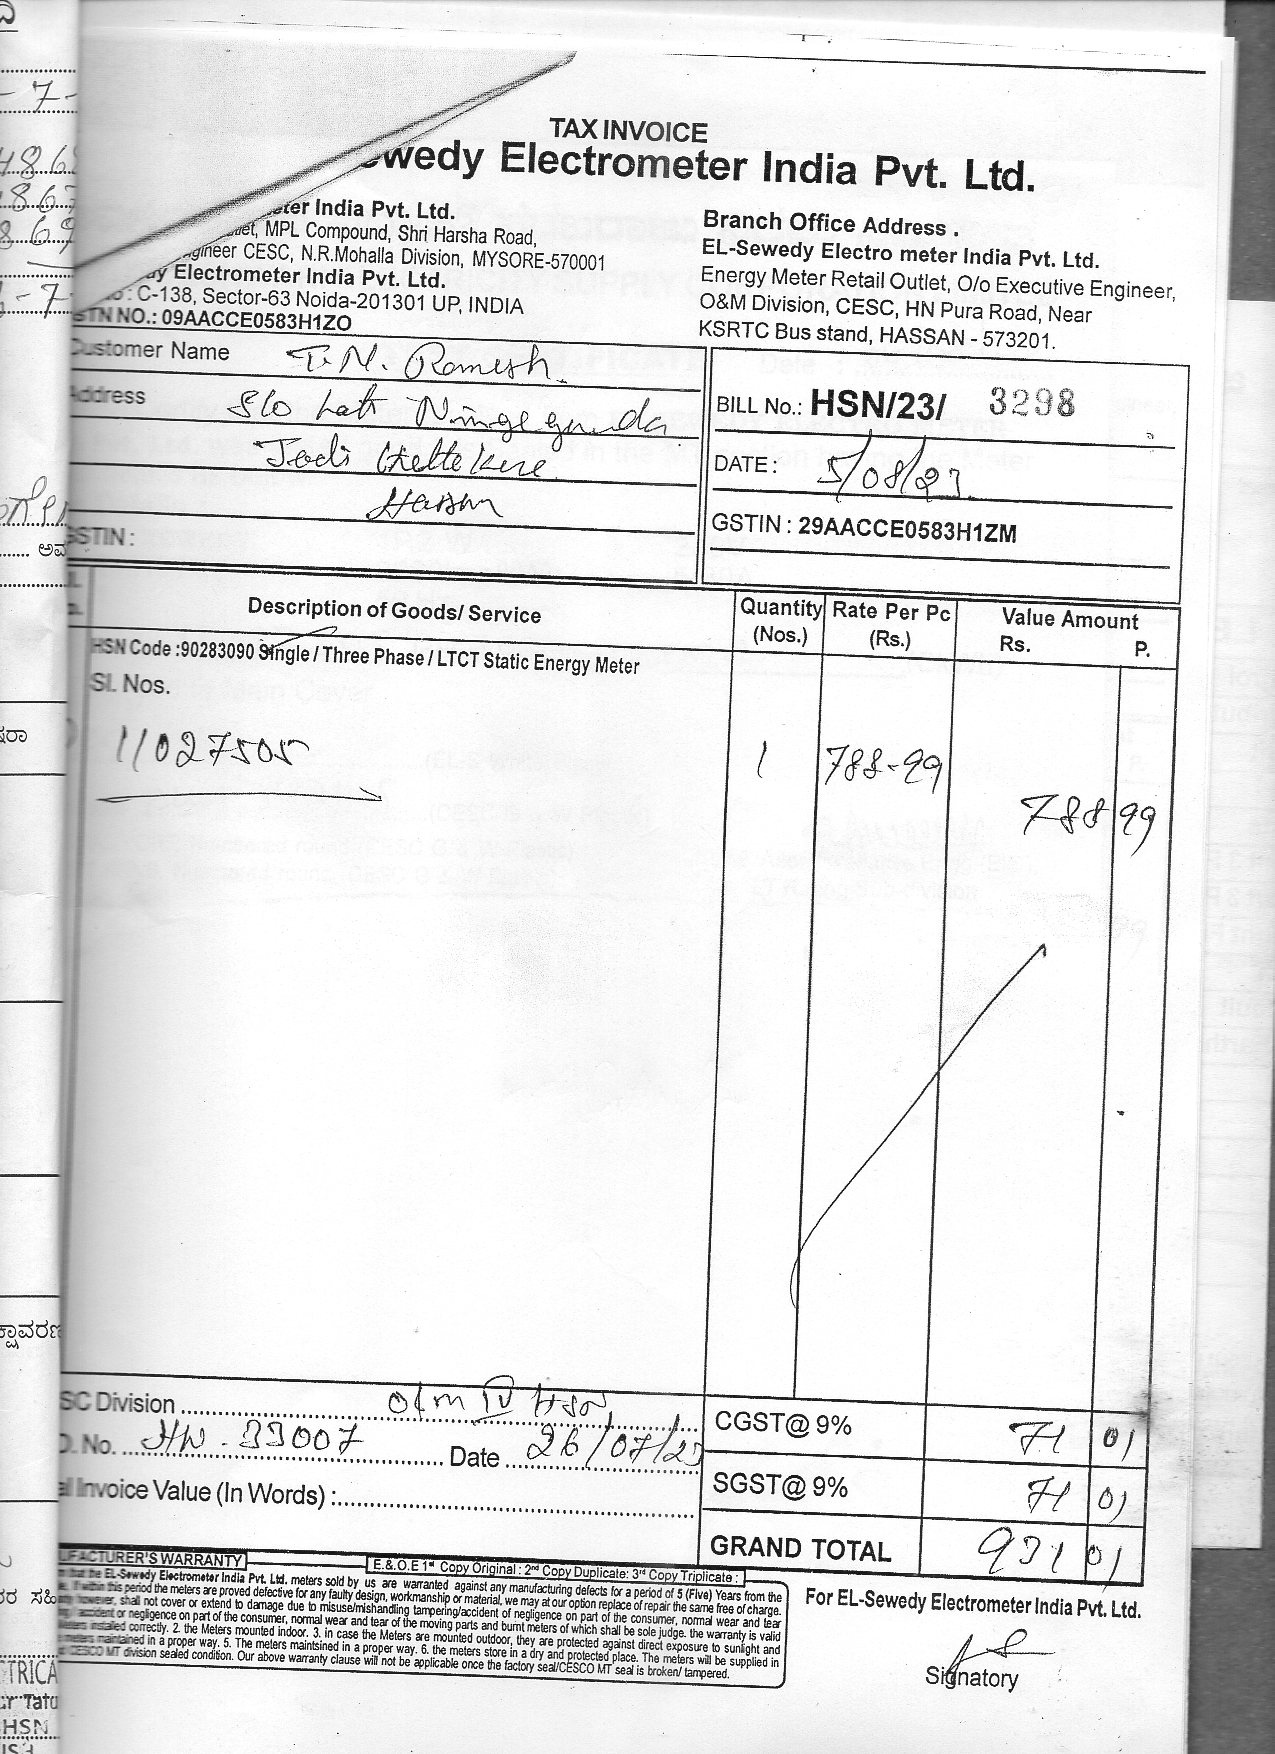 TAX INVOICE
ewedy Electrometer India Pvt. Ltd.
ter India Pvt. Ltd.
MPL Compound, Shri Harsha Road,
gineer CESC, N.R.Mohalla Division, MYSORE-570001
y Electrometer India Pvt. Ltd.
: C-138, Sector-63 Noida-201301 UP, INDIA
STN NO.: 09AACCE0583H1ZO
Branch Office Address .
EL-Sewedy Electro meter India Pvt. Ltd.
Energy Meter Retail Outlet, O/o Executive Engineer,
O&M Division, CESC, HN Pura Road, Near
KSRTC Bus stand, HASSAN - 573201.
Customer Name T.N. Ramesh
Address S/o Late Ningegowda
Jodi
Hassan
GSTIN :
BILL No.: HSN/23/ 3298
DATE : 5/08/23
GSTIN : 29AACCE0583H1ZM
Description of Goods/ Service
Quantity (Nos.)
Rate Per Pc (Rs.)
Value Amount
Rs. P.
HSN Code :90283090 Single / Three Phase / LTCT Static Energy Meter
Sl. Nos.
11027505 1 788-99 788 99
SC Division O&M IV HSN
No. HW-33007 Date 26/07/23
Invoice Value (In Words) :
CGST@ 9% 71 01
SGST@ 9% 71 01
GRAND TOTAL 931 01
UFACTURER'S WARRANTY
E.& O.E 1st Copy Original : 2nd Copy Duplicate: 3rd Copy Triplicate :
that the EL-Sewedy Electrometer India Pvt. Ltd. meters sold by us are warranted against any manufacturing defects for a period of 5 (Five) Years from the
If within this period the meters are proved defective for any faulty design, workmanship or material, we may at our option replace of repair the same free of charge.
however, shall not cover or extend to damage due to misuse/mishandling tampering/accident of negligence on part of the consumer, normal wear and tear
accident or negligence on part of the consumer, normal wear and tear of the moving parts and burnt meters of which shall be sole judge. the warranty is valid
meters installed correctly. 2. the Meters mounted indoor. 3. in case the Meters are mounted outdoor, they are protected against direct exposure to sunlight and
meters maintained in a proper way. 5. The meters maintsined in a proper way. 6. the meters store in a dry and protected place. The meters will be supplied in
CESCO MT division sealed condition. Our above warranty clause will not be applicable once the factory seal/CESCO MT seal is broken/ tampered.
For EL-Sewedy Electrometer India Pvt. Ltd.
Signatory